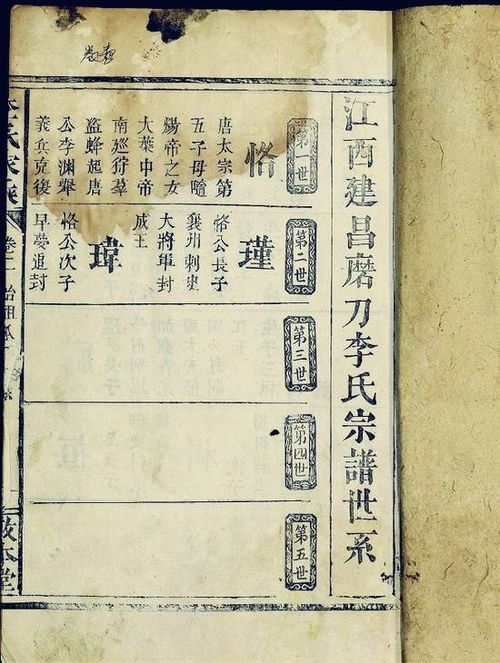 江西建昌磨刀李氏宗譜世系
第一世
恪
唐太宗第
五子母隨
煬帝之女
大業中帝
南廵狩羣
盜蜂起唐
公李淵舉
義兵克復
第二世
瑾
恪公長子
襄州刺史
大將軍封
成王
瑋
恪公次子
早薨追封
第三世
第四世
第五世